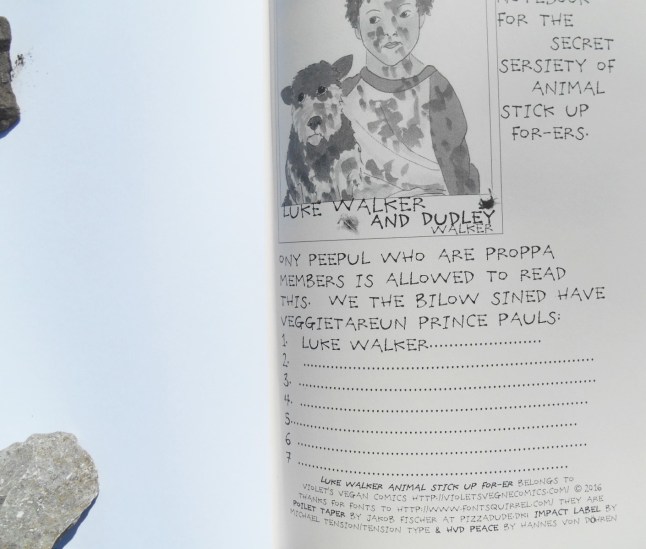 NOTEBOOK
FOR THE
SECRET
SERSIETY OF
ANIMAL
STICK UP
FOR-ERS.
LUKE WALKER
AND DUDLEY
WALKER
ONY PEEPUL WHO ARE PROPPA
MEMBERS IS ALLOWED TO READ
THIS. WE THE BILOW SINED HAVE
VEGGIETAREUN PRINCE PAULS:
1. LUKE WALKER.......................
2. ............................................................
3. ............................................................
4. ..........................................................
5...........................................................
6 ..........................................................
7 ......................................................
LUKE WALKER ANIMAL STICK UP FOR-ER BELONGS TO
VIOLET'S VEGAN COMICS HTTP://VIOLETSVEGNECOMICS.COM/ © 2016
THANKS FOR FONTS TO HTTP://WWW.FONTSQUIRREL.COM/ THEY ARE
POILET TAPER BY JAKOB FISCHER AT PIZZADUDE.DK! IMPACT LABEL BY
MICHAEL TENSION/TENSION TYPE & HVD PEACE BY HANNES VON DÖHREN